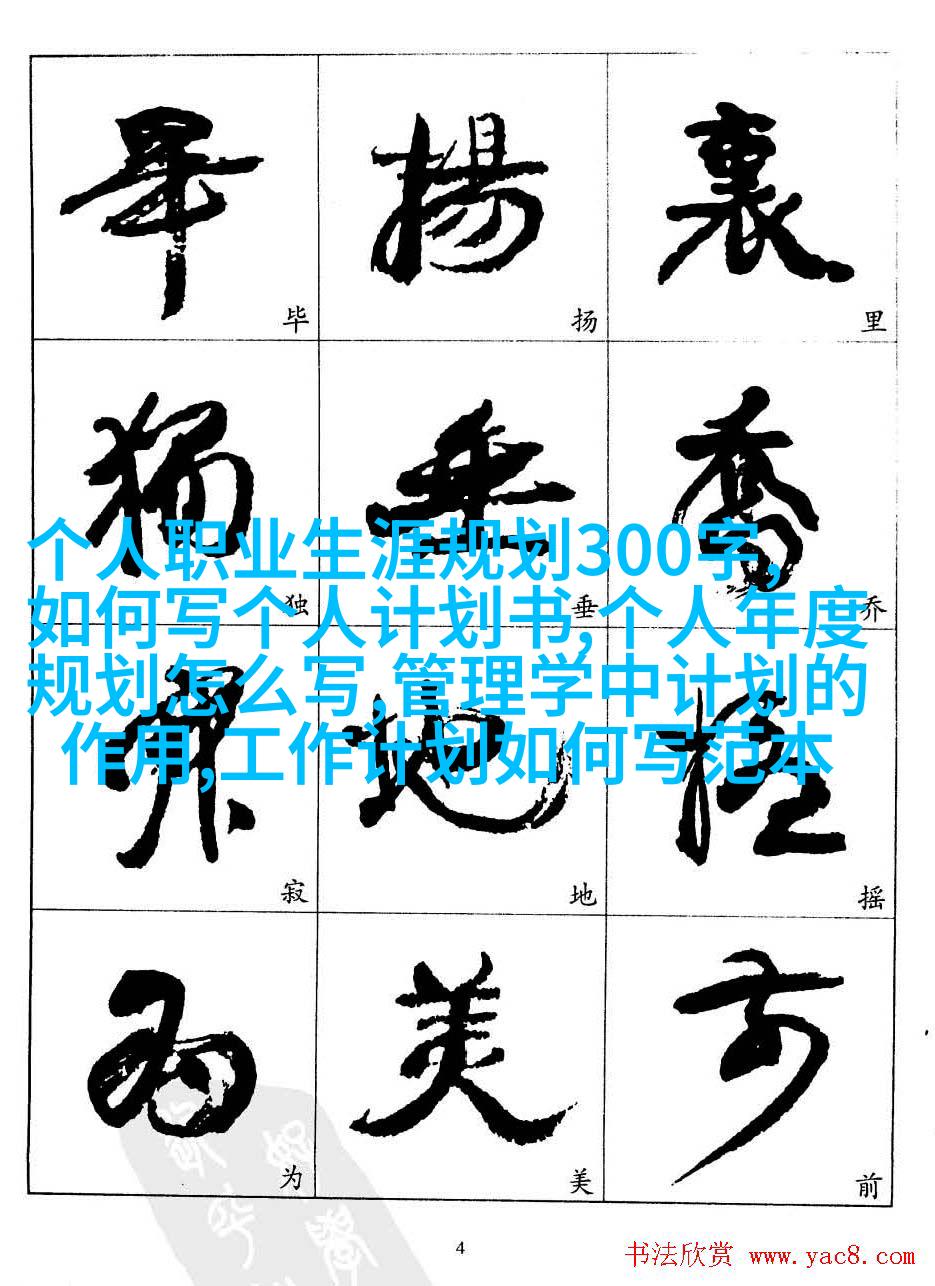 畢 揚 裏
毕 扬 里
獨 垂 喬
独 垂 乔
个人职业生涯规划300字,
如何写个人计划书,个人年度
规划怎么写,管理学中计划的
作用,工作计划如何写范本
寂 地 摇
寂 地 摇
为 美 前
为 美 前
4
书法欣赏 www.yac8.com